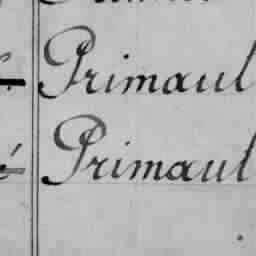 Primaul
Primaul